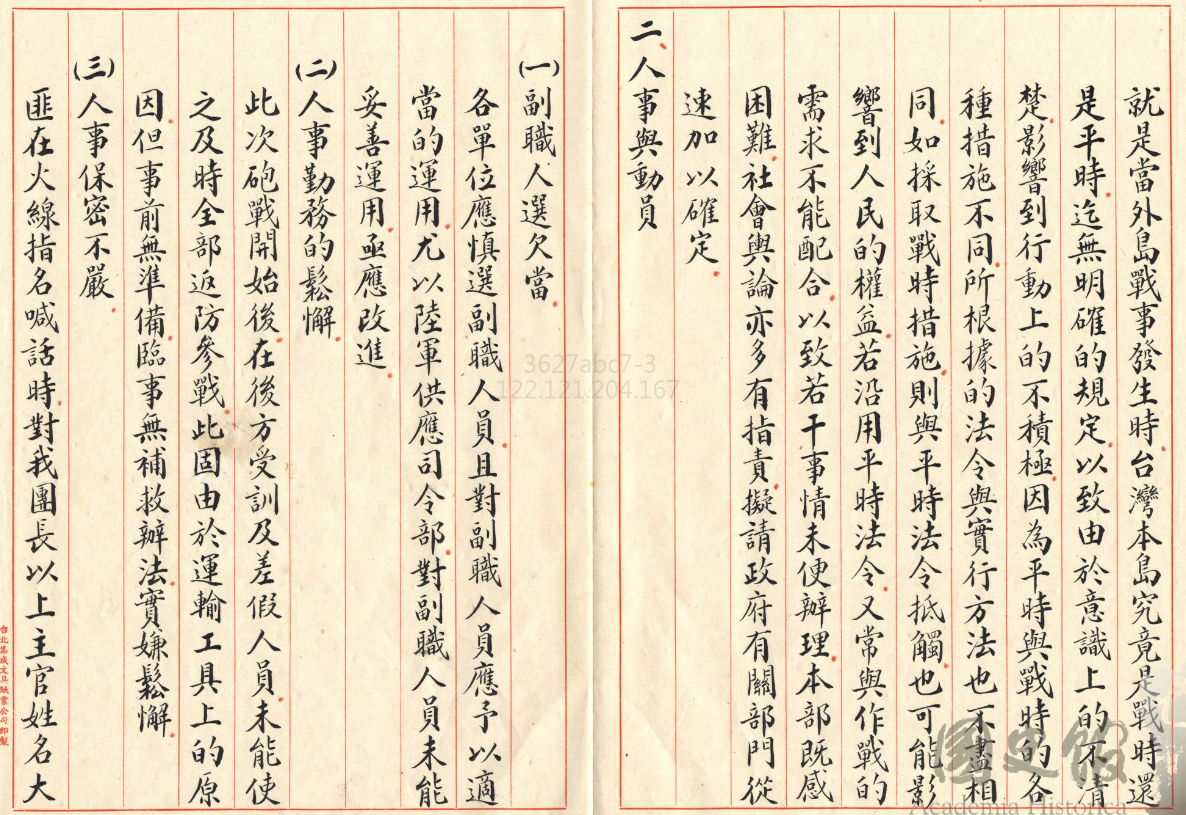 就是當外島戰事發生時.台灣本島究竟是戰時還
是平時.迄無明確的規定.以致由於意識上的不清
楚.影響到行動上的不積極.因為平時與戰時的各
種措施不同.所根據的法令與實行方法也不盡相
同.如採取戰時措施.則與平時法令抵觸.也可能影
響到人民的權益.若沿用平時法令.又常與作戰的
需求不能配合.以致若干事情未便辦理.本部既感
困難.社會輿論亦多有指責.擬請政府有關部門從
速加以確定.
二、人事與動員
(一)副職人選欠當.
各單位應慎選副職人員.且對副職人員應予以適
當的運用.尤以陸軍供應司令部.對副職人員未能
妥善運用.亟應改進.
(二)人事勤務的鬆懈.
此次砲戰開始後.在後方受訓及差假人員.未能使
之及時全部返防參戰.此固由於運輸工具上的原
因.但事前無準備.臨事無補救辦法.實嫌鬆懈.
(三)人事保密不嚴.
匪在火線指名喊話時.對我團長以上主官姓名大
台北集成文具紙業公司印製
3627abc7-3
122.121.204.167
國史館
Academia Historica